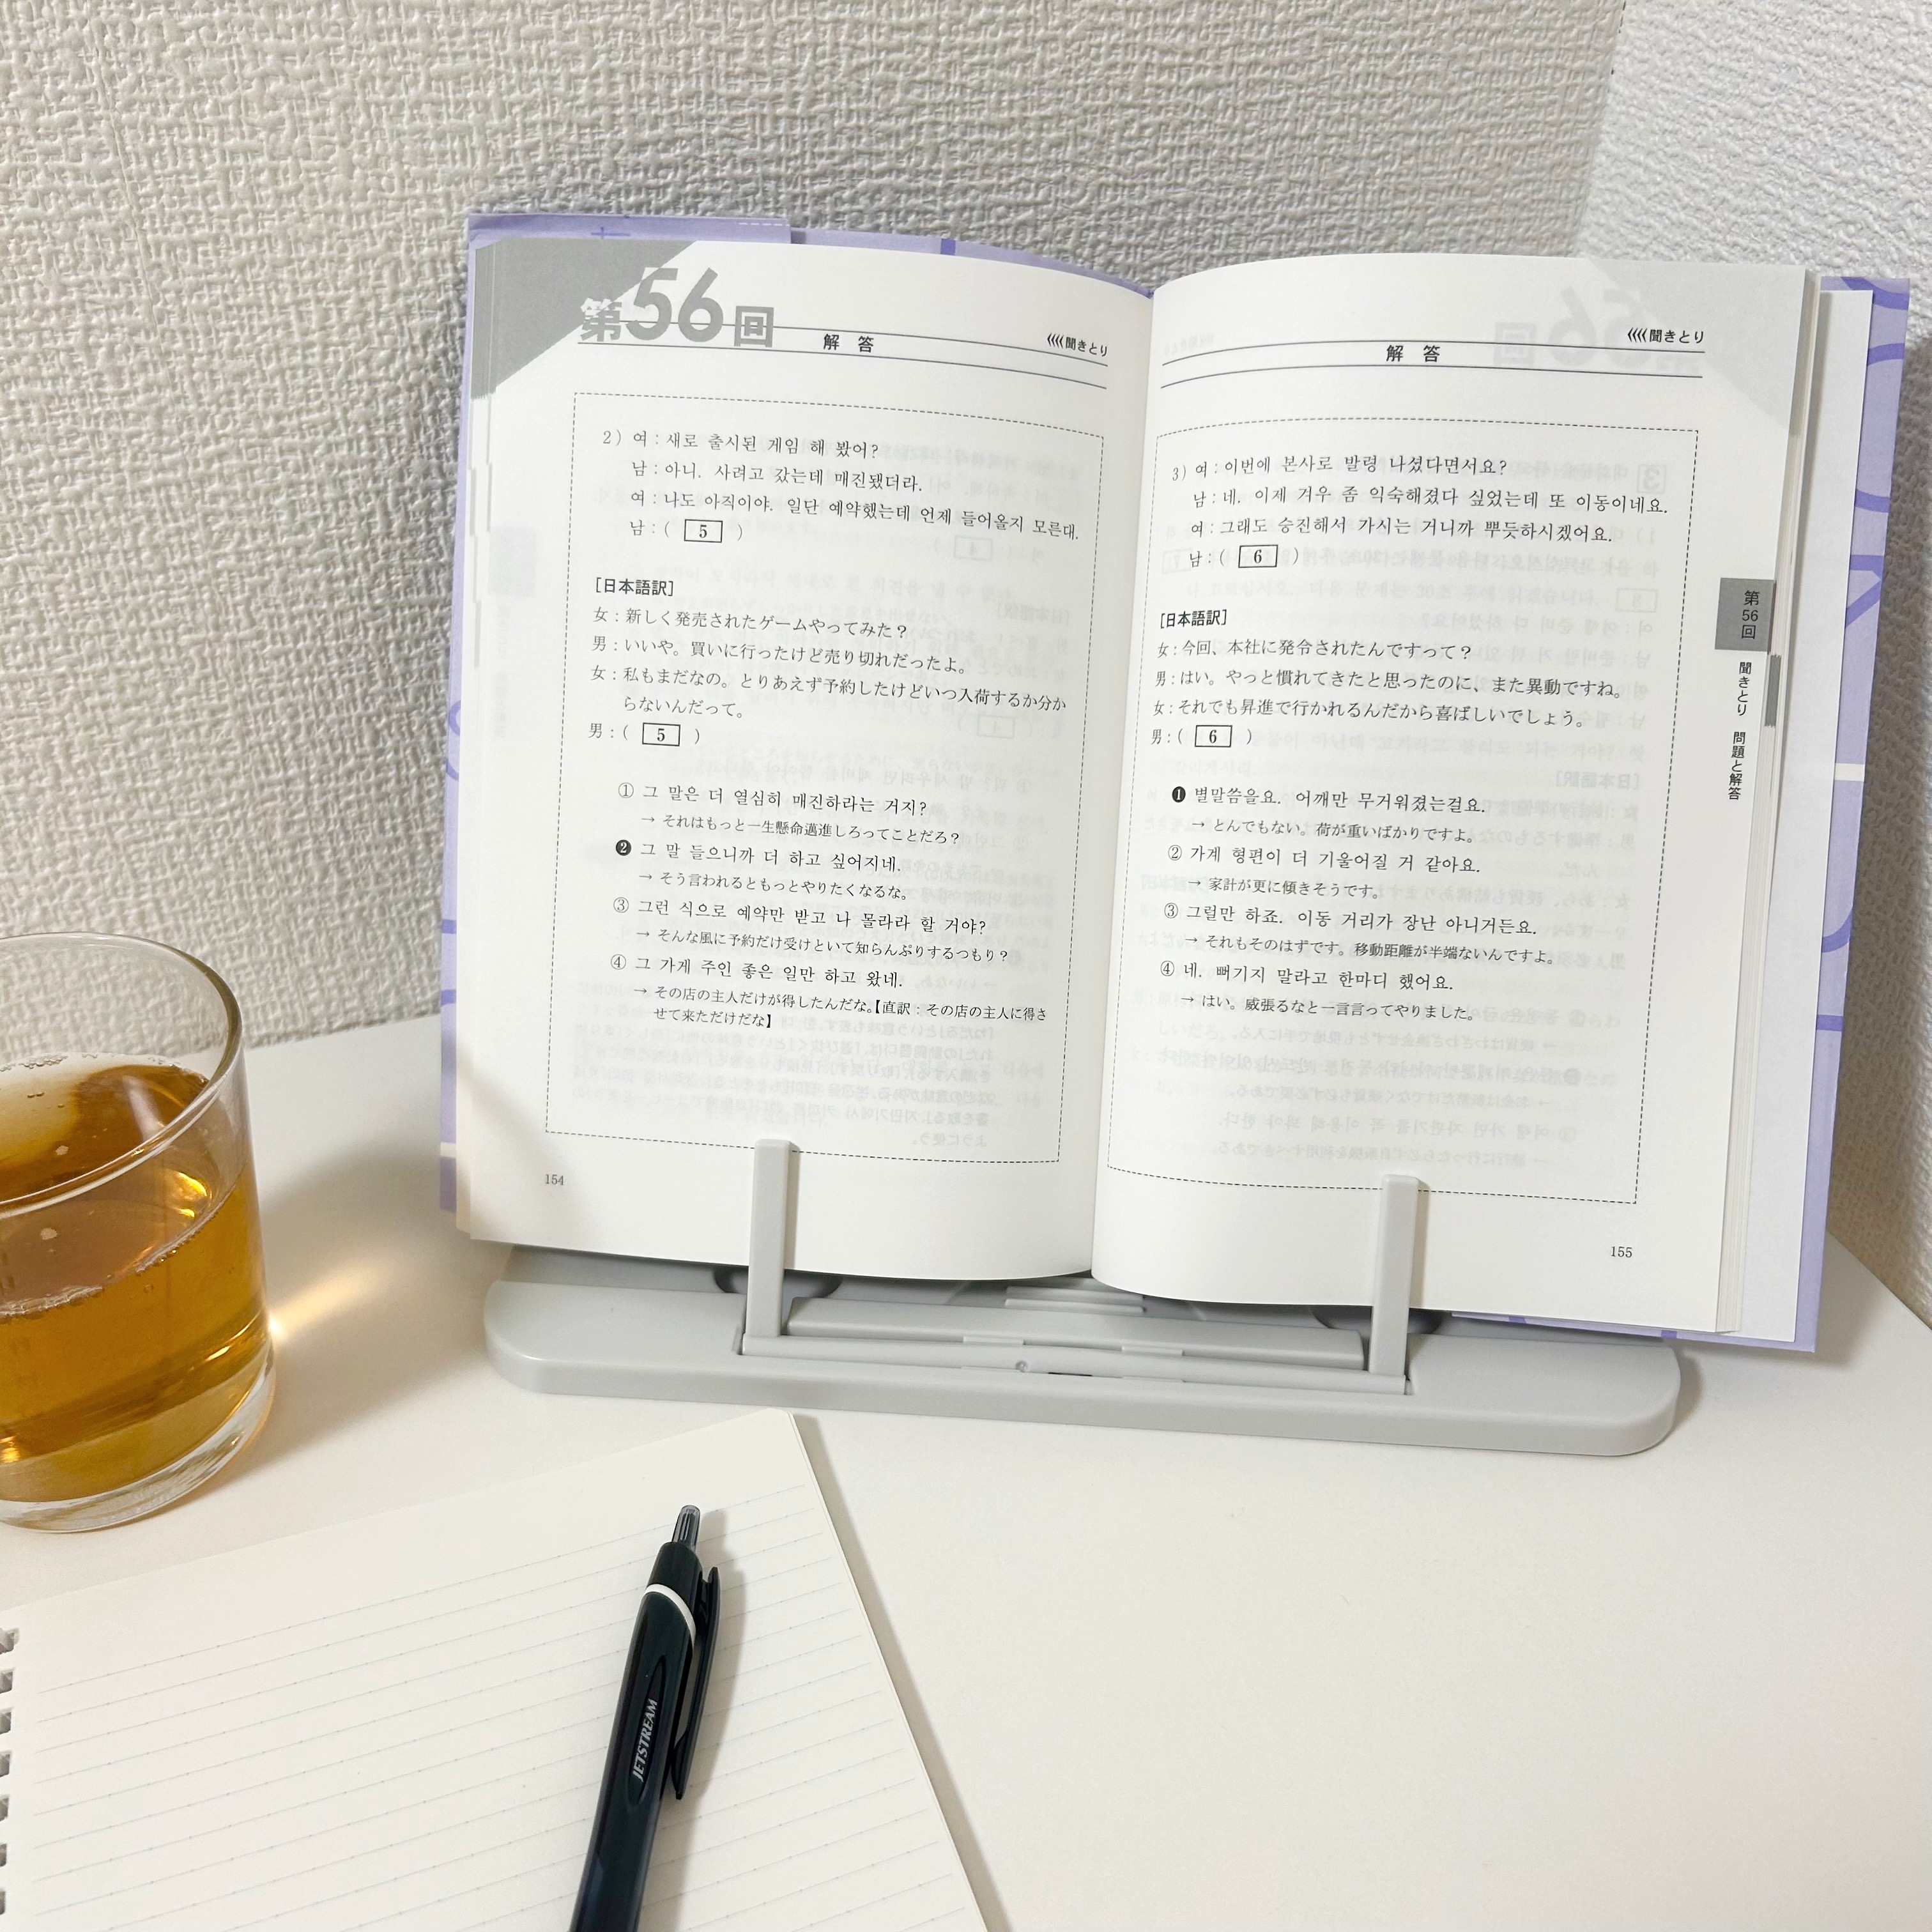 第56回
解 答
聞きとり
2) 여 : 새로 출시된 게임 해 봤어?
남 : 아니. 사려고 갔는데 매진됐더라.
여 : 나도 아직이야. 일단 예약했는데 언제 들어올지 모른대.
남 : ( 5 )
[日本語訳]
女 : 新しく発売されたゲームやってみた？
男 : いいや。買いに行ったけど売り切れだったよ。
女 : 私もまだなの。とりあえず予約したけどいつ入荷するか分か
らないんだって。
男 : ( 5 )
① 그 말은 더 열심히 매진하라는 거지?
→ それはもっと一生懸命邁進しろってことだろ？
❷ 그 말 들으니까 더 하고 싶어지네.
→ そう言われるともっとやりたくなるな。
③ 그런 식으로 예약만 받고 나 몰라라 할 거야?
→ そんな風に予約だけ受けといて知らんぷりするつもり？
④ 그 가게 주인 좋은 일만 하고 왔네.
→ その店の主人だけが得したんだな。【直訳：その店の主人に得さ
せて来ただけだな】
154
聞きとり
解 答
3) 여 : 이번에 본사로 발령 나셨다면서요?
남 : 네. 이제 겨우 좀 익숙해졌다 싶었는데 또 이동이네요.
여 : 그래도 승진해서 가시는 거니까 뿌듯하시겠어요.
남 : ( 6 )
[日本語訳]
女 : 今回、本社に発令されたんですって？
男 : はい。やっと慣れてきたと思ったのに、また異動ですね。
女 : それでも昇進で行かれるんだから喜ばしいでしょう。
男 : ( 6 )
❶ 별말씀을요. 어깨만 무거워졌는걸요.
→ とんでもない。荷が重いばかりですよ。
② 가계 형편이 더 기울어질 거 같아요.
→ 家計が更に傾きそうです。
③ 그럴만 하죠. 이동 거리가 장난 아니거든요.
→ それもそのはずです。移動距離が半端ないんですよ。
④ 네. 뻐기지 말라고 한마디 했어요.
→ はい。威張るなと一言言ってやりました。
155
第56回
聞きとり 問題と解答
JETSTREAM